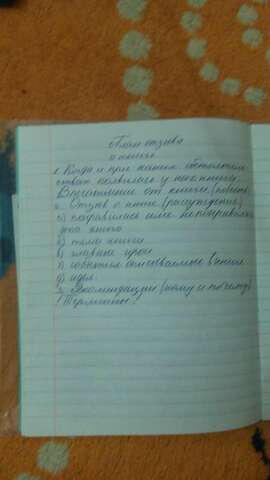 План отзыва
о книге
1. Когда и при каких обстоятель
ствах появилась у нас книга.
Впечатление от книги. (повест
2. Отзыв о книге (рассуждение)
а) понравилась или не понравила
эта книга
б) тема книги
в) главные герои
г) события описываемые в книге
д) идея
3. Рекомендации (кому и почему)
! Термины!